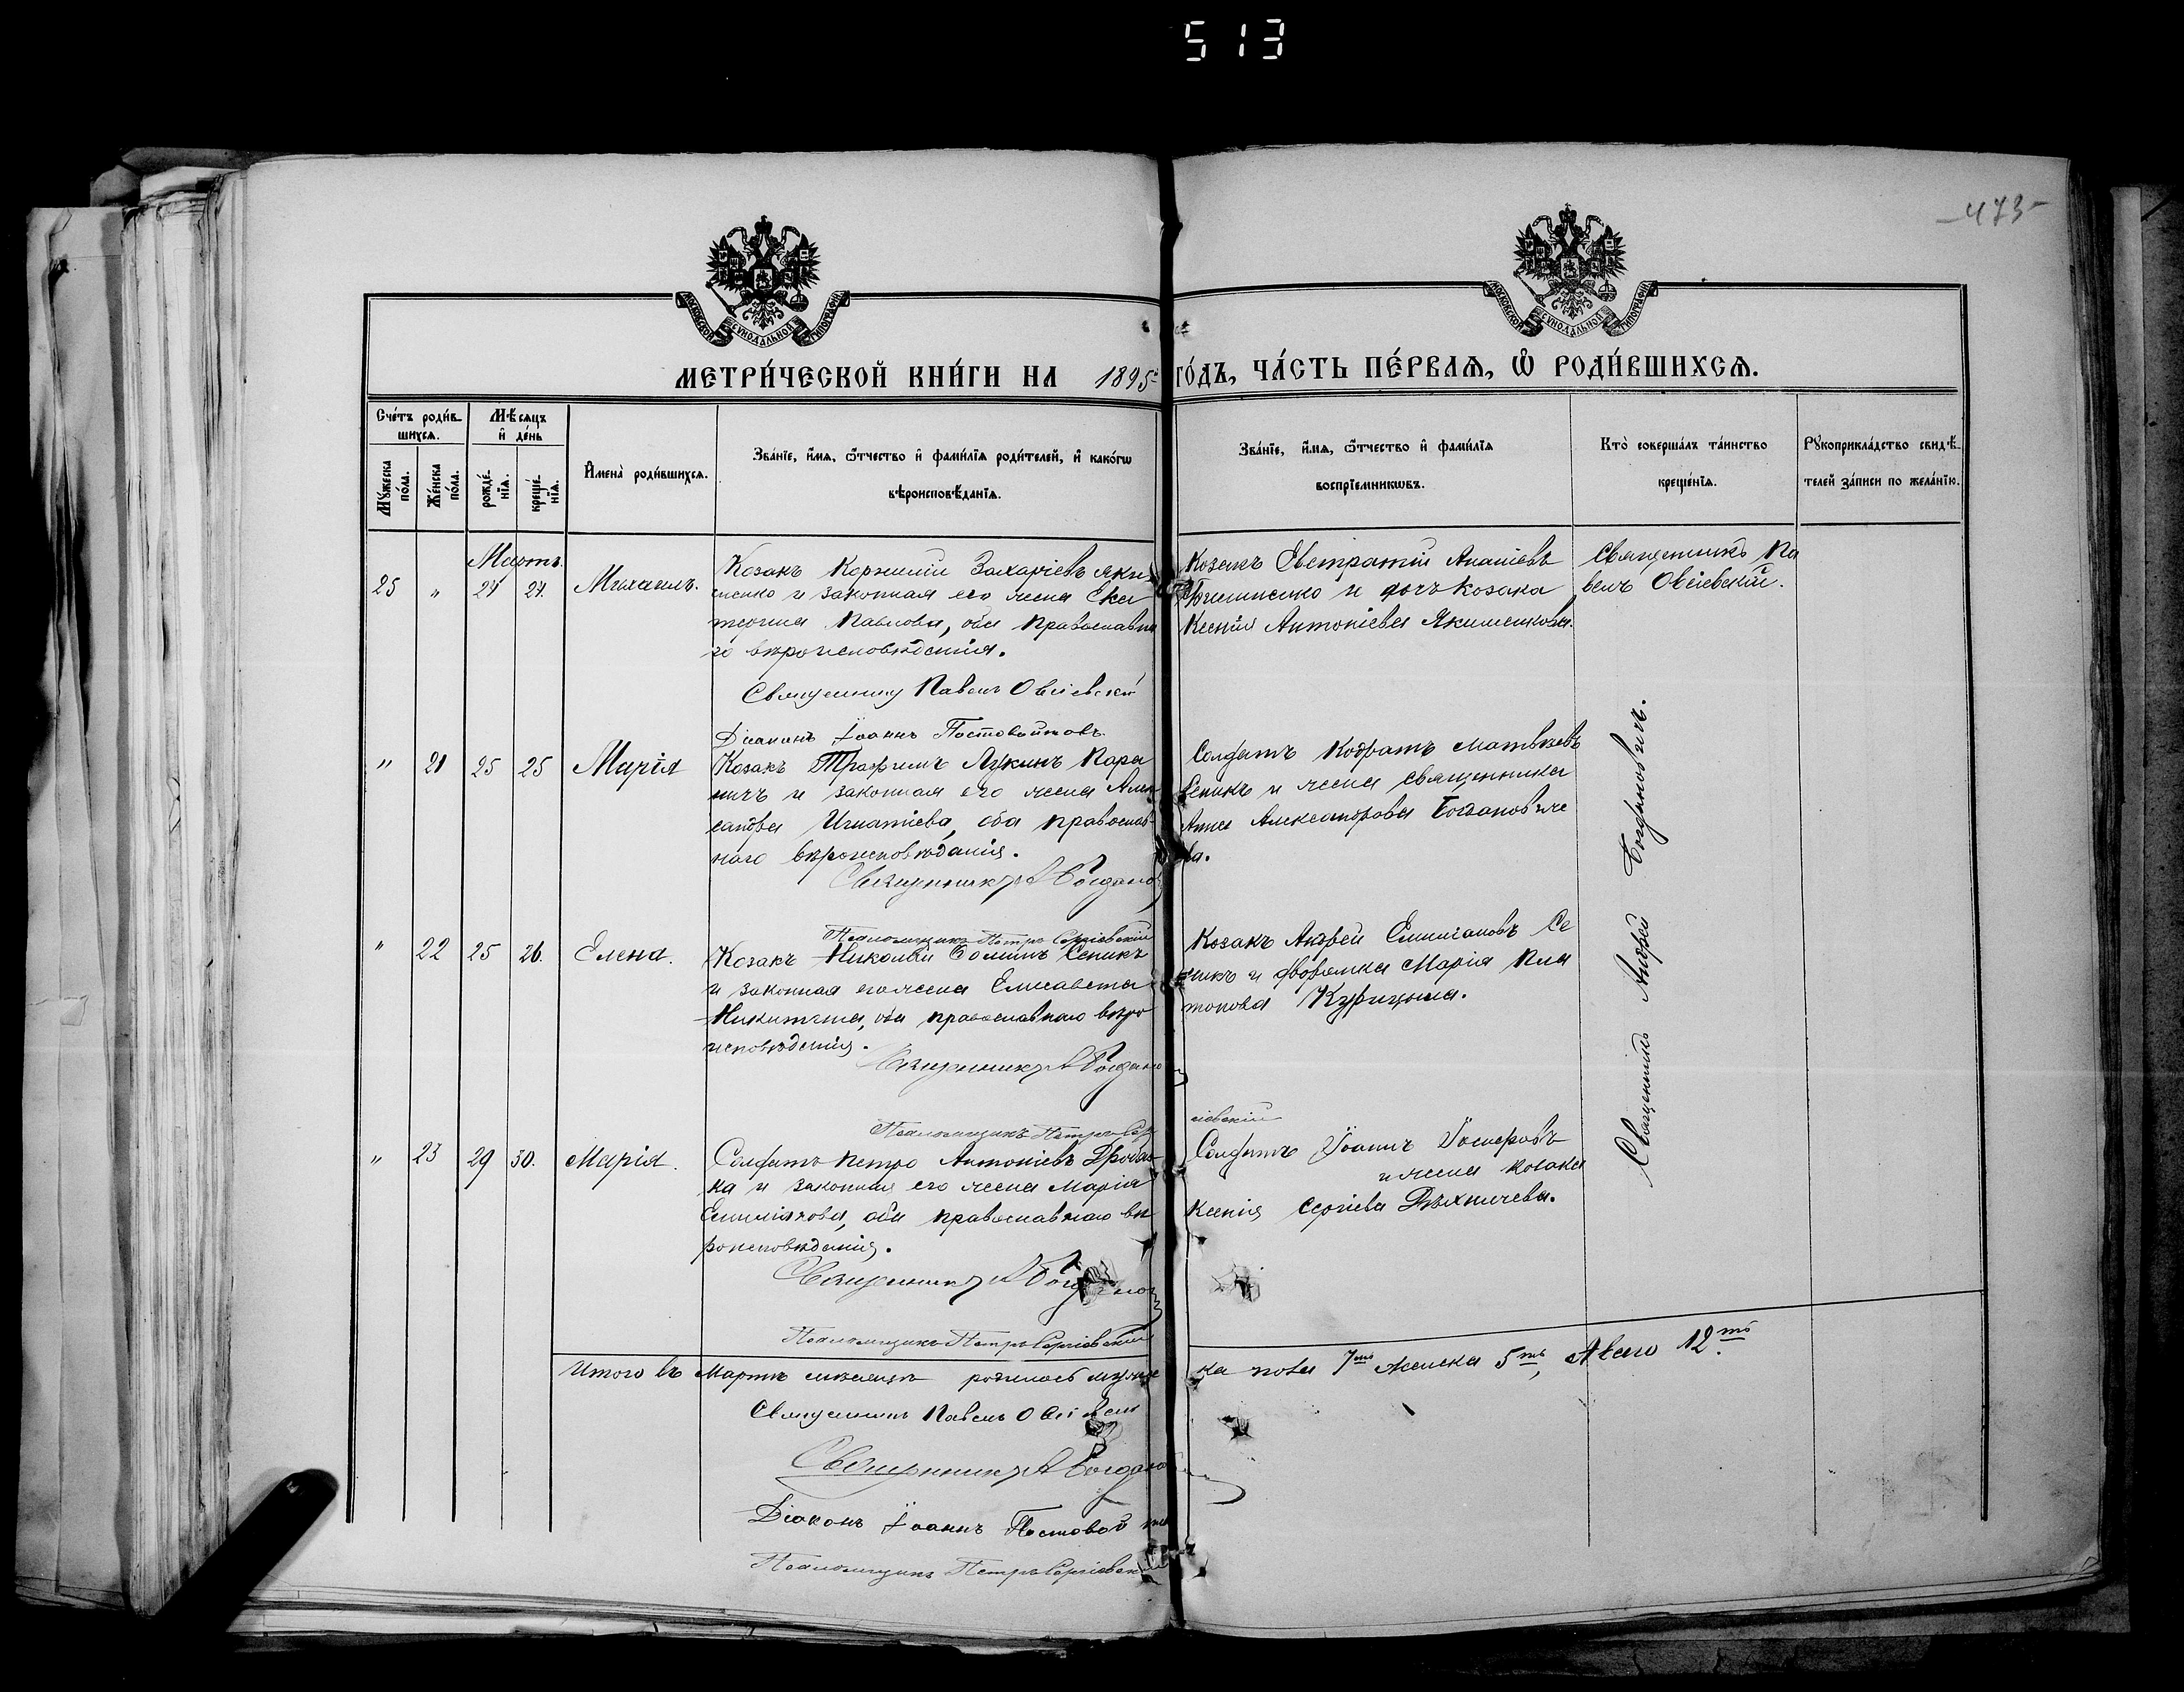 513
-473-
МОСКОВСКОЙ СУНОДАЛЬНОЙ ТИПОГРАФІИ
МОСКОВСКОЙ СУНОДАЛЬНОЙ ТИПОГРАФІИ
МЕТРИ́ЧЕСКОЙ КНИ́ГИ НА 1895 ГО́ДЪ, ЧА́СТЬ ПЕ́РВАѦ, Ѡ РОДИ́ВШИХСѦ.
Сче́тъ роди́в-
шихся.
Мꙋжеска по́ла.
Же́нска по́ла.
Мѣсяцъ
и де́нь
рожде́-
нїѧ.
креще́-
нїѧ.
Имена̀ роди́вшихсѧ.
Зва́нїе, и́мѧ, ѻ҆́тчество и фами́лїѧ роди́телей, и како́гѡ
вѣроисповѣ́данїѧ.
Зва́нїе, и́мѧ, ѻ҆́тчество и фами́лїѧ
воспрїемникѡвъ.
Кто̀ соверша́лъ та́инство
креще́нїѧ.
Рꙋкоприкла́дство свидѣ́-
телей за́писи по жела́нїю.
Мартъ
25 " 24 24. Михаилъ.
Козакъ Корнилій Захаріевъ Яки
менко и законная его жена Ека
терина Павлова, оба православна
го вѣроисповѣданія.
Священникъ Павелъ Овсіевскій
Діаконъ Іоаннъ Постовойтовъ
Козакъ Евстратій Ананіевъ
и дочь козака
Ксенія Антоніева Якименкова.
Священникъ Па
велъ Овсіевскій.
" 21 25 25 Марія
Козакъ Трофимъ Лукинъ Кара
и законная его жена Алек
сандра Игнатіева, оба православ-
наго вѣроисповѣданія.
Священникъ А Богдано
Псаломщикъ Петръ Сергіевскій
Солдатъ Кодратъ Матвѣевъ
Сеникъ и жена священника
Анна Александрова Богданович
ва.
" 22 25 26. Елена.
Козакъ Николай Ѳоминъ Сеникъ
и законная его жена Елисавета
Никитина, оба православнаго вѣро
исповѣданія.
Священникъ А Богдано
Псаломщикъ Петръ Сер
гіевскій
Козакъ Андрей Емиліановъ Се
никъ и дворянка Марія Пла
тонова Курицына.
" 23 29 30. Марія.
Солдатъ Петръ Антоніевъ Дробаз
ка и законная его жена Марія
Емиліанова, оба православнаго вѣ
роисповѣданія.
Священникъ А Богданов
Псаломщикъ Петръ Сергіевскій
Солдатъ Іоаннъ Іосифовъ
и жена козака
Ксенія Сергіева
Священникъ Андрей Богдановичъ.
Итого въ Мартѣ мѣсяцѣ родилось мужс
ка пола 7мь женска 5ть, А всего 12ть
Священникъ Павелъ Овсіевскі
Священникъ А Богдано
Діаконъ Іоаннъ Постовойтов
Псаломщикъ Петръ Сергіевскій